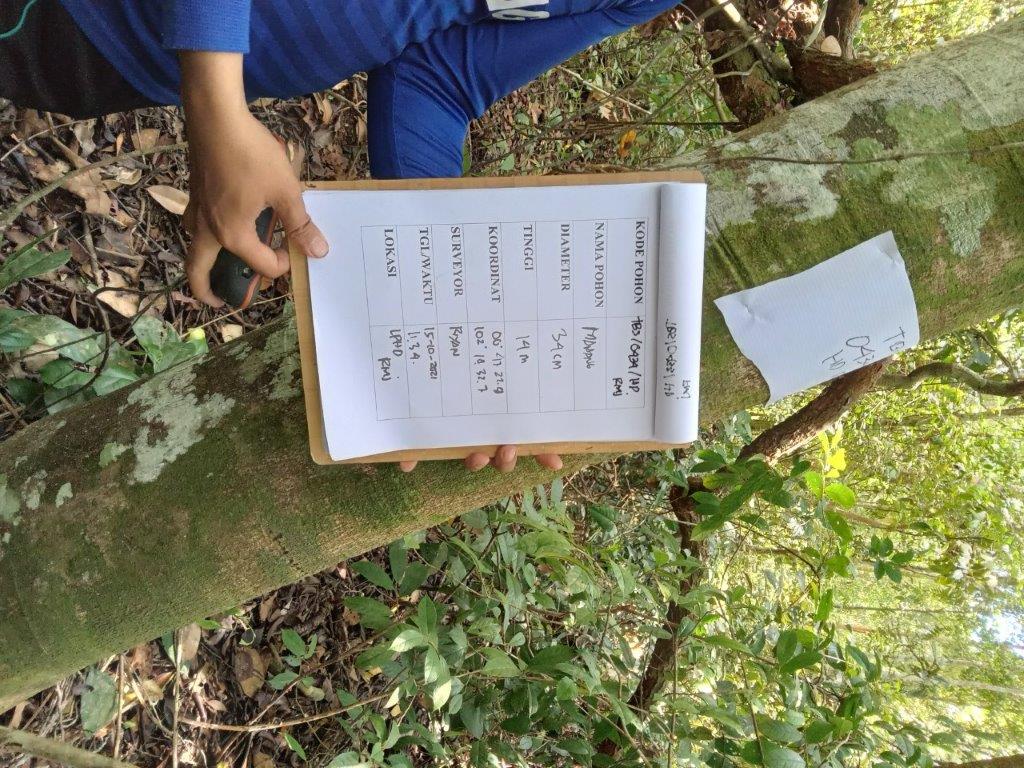 TB
043
HD
KODE POHON TBJ/0434/HP.
RMJ
NAMA POHON MAHANG
DIAMETER 34 CM
TINGGI 14 M
KOORDINAT
102°
SURVEYOR RIYAN
TGL/WAKTU 15-10-2021
11.34.
LOKASI LPHD
RMJ